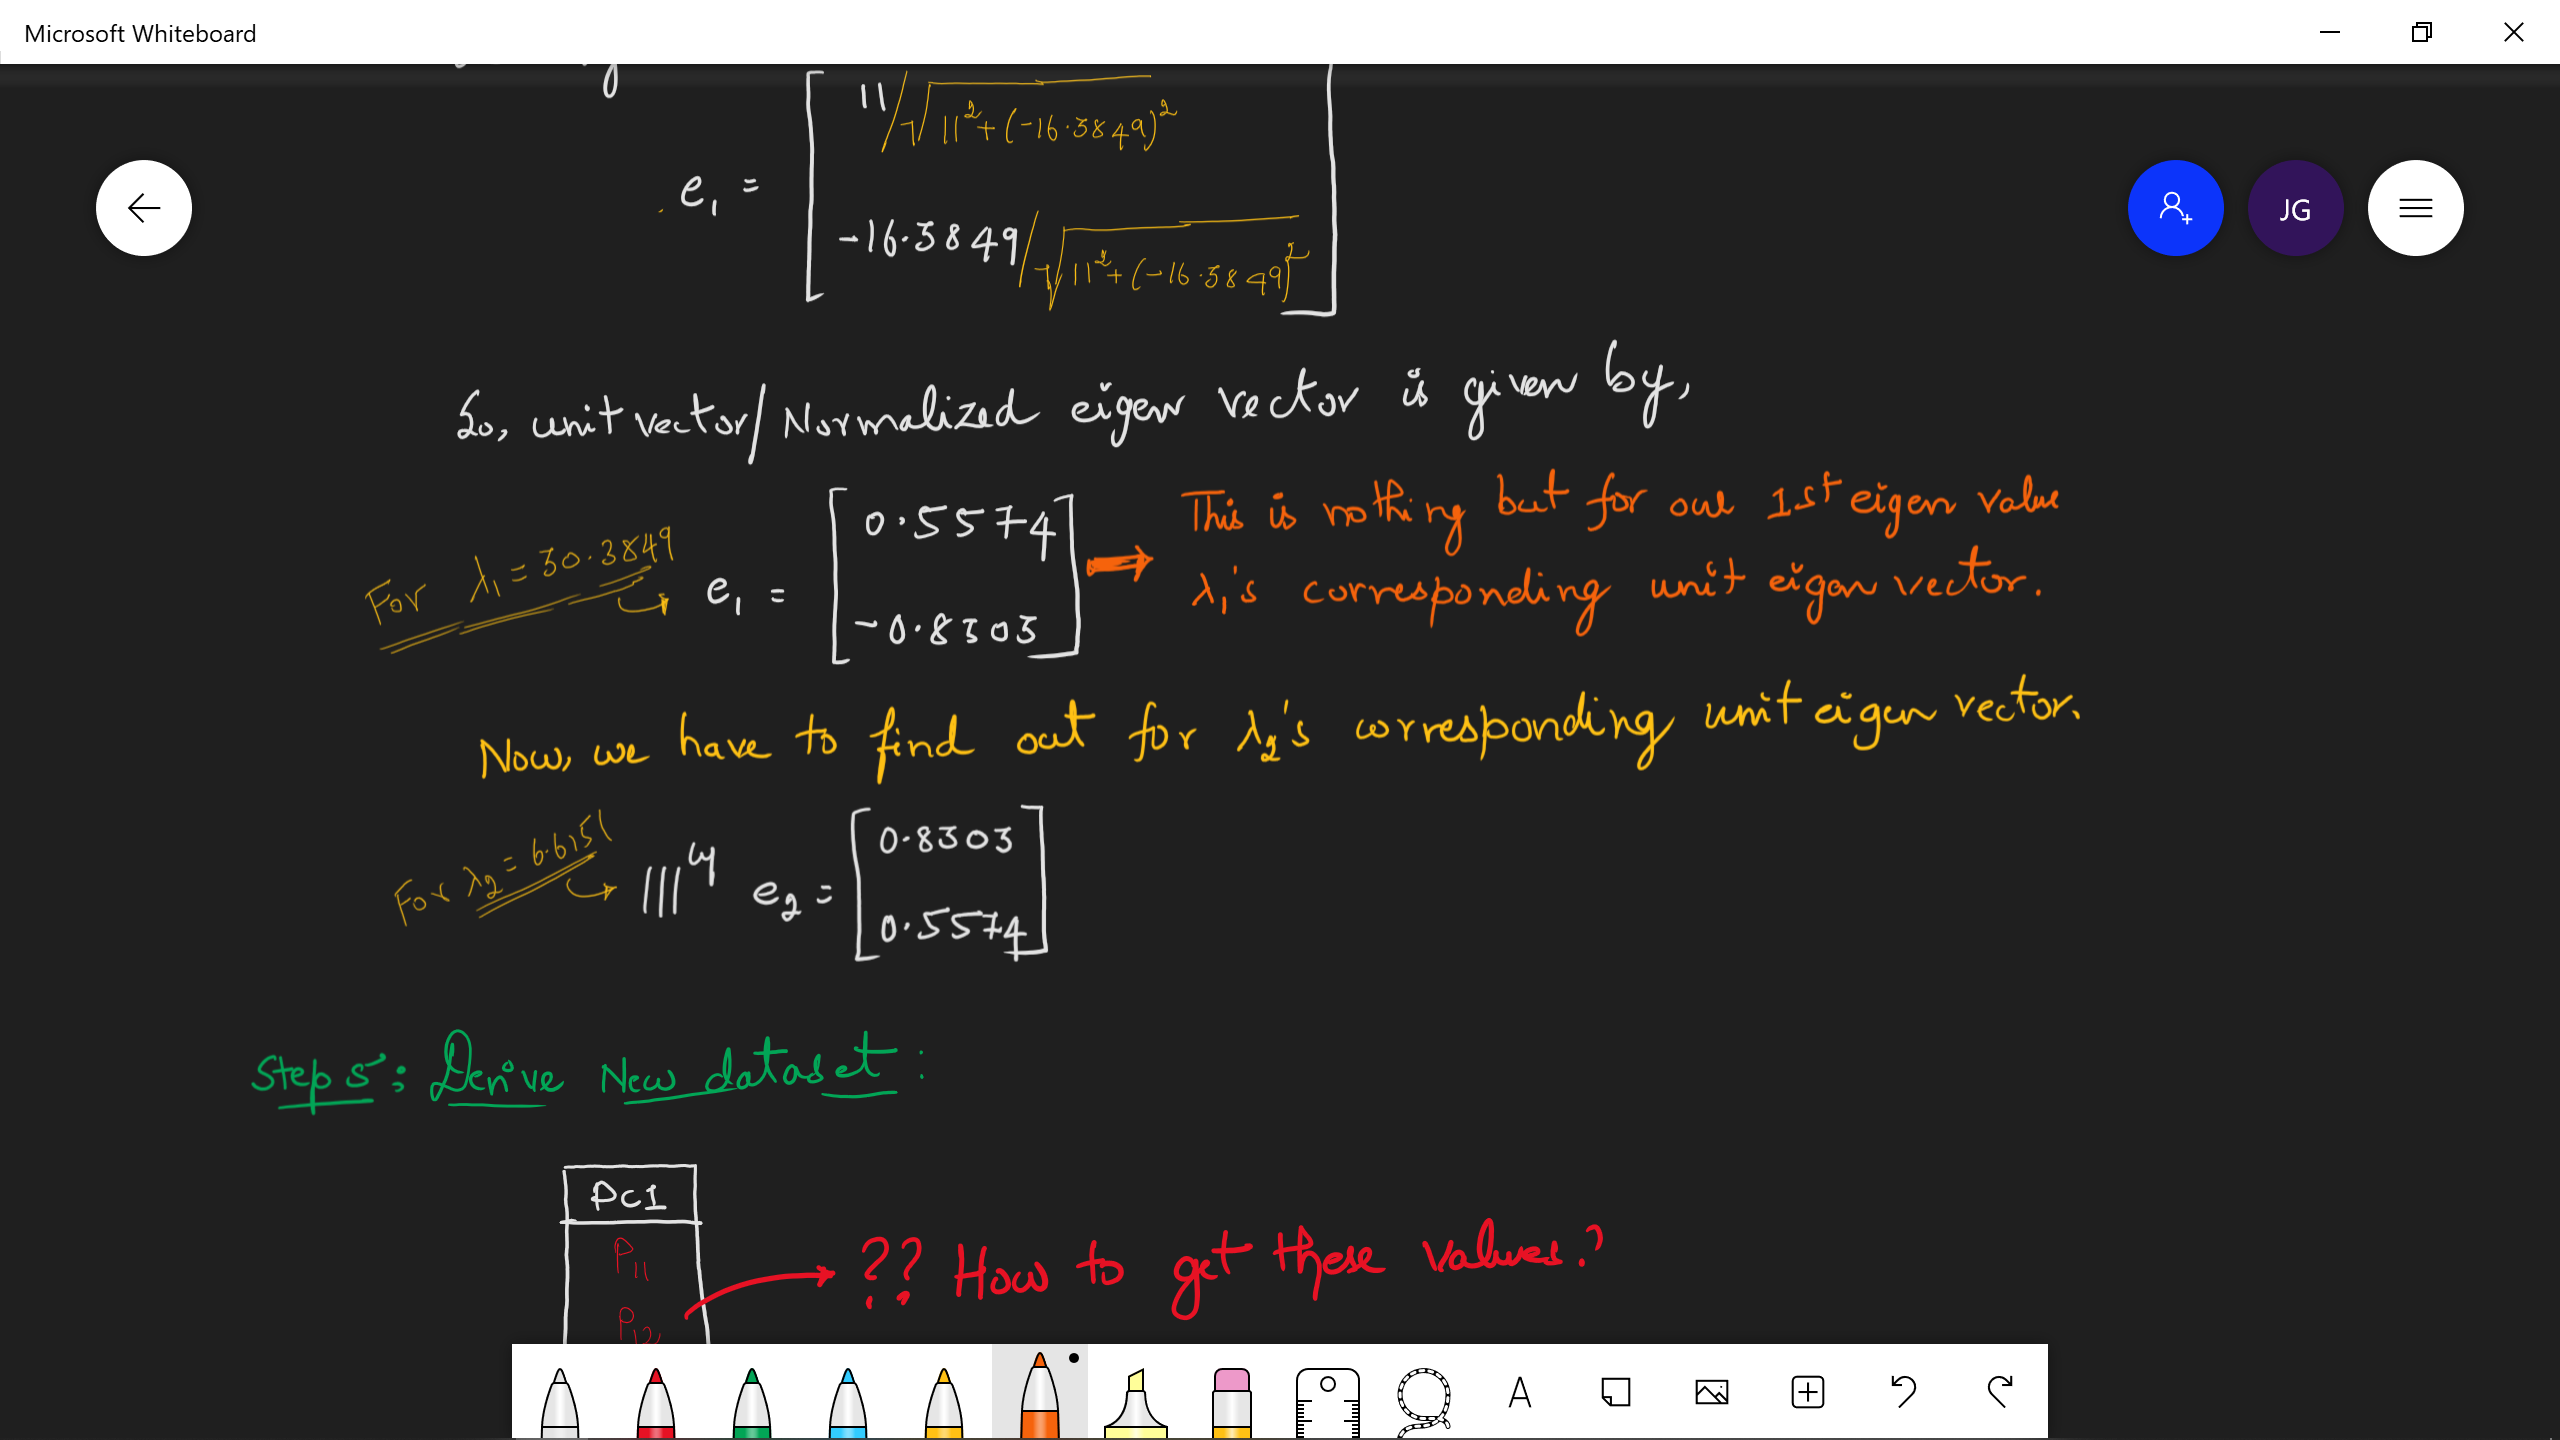 Microsoft Whiteboard
11/√11²+(-16.3849)²
e₁ =
-16.3849/√11²+(-16.3849)²
JG
So, unit vector/Normalized eigen vector is given by,
For λ₁ = 30.3849
e₁ = [0.5574
-0.8303]
This is nothing but for our 1st eigen value
λ₁'s corresponding unit eigen vector.
Now, we have to find out for λ₂'s corresponding unit eigen vector.
For λ₂ = 6.6151
|||ly e₂ = [0.8303
0.5574]
Step 5: Derive New dataset:
PC1
P₁₁
P₁₂
?? How to get these values?
A